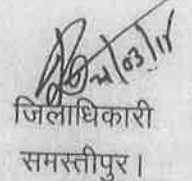 जिलाधिकारी
समस्तीपुर।